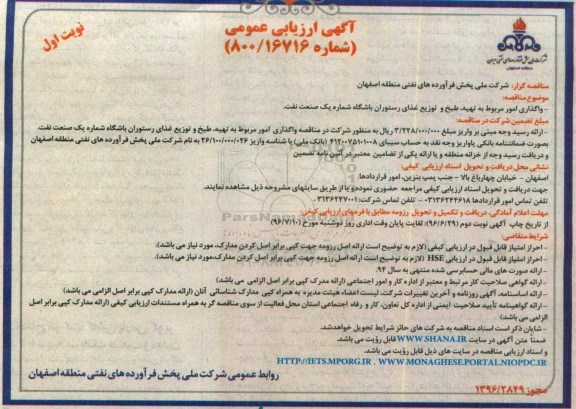 آگهی ارزیابی عمومی
(شماره ۸۰۰/۱۶۷۱۶)
نوبت اول
منطقه اصفهان
مناقصه گزار: شرکت ملی پخش فرآورده های نفتی منطقه اصفهان
موضوع مناقصه:
- واگذاری امور مربوط به تهیه، طبخ و توزیع غذای رستوران باشگاه شماره یک صنعت نفت.
مبلغ تضمین شرکت در مناقصه:
- ارائه رسید وجه مبنی بر واریز مبلغ ۳/۲۲۸/۰۰۰/۰۰۰ ریال به منظور شرکت در مناقصه واگذاری امور مربوط به تهیه، طبخ و توزیع غذای رستوران باشگاه شماره یک صنعت نفت.
بصورت ضمانتنامه بانکی یا واریز وجه نقد به حساب سیبای ۴۱۲۰۰۷۵۱۰۱۰۰۸ (بانک ملی) با شناسه واریز ۲۶/۱۰۰/۰۰۰/۰۲۶ به نام شرکت ملی پخش فرآورده های نفتی منطقه اصفهان
و دریافت رسید وجه از خزانه منطقه و یا ارائه یکی از تضامین معتبر در آئین نامه تضمین
نشانی محل دریافت و تحویل اسناد ارزیابی کیفی:
اصفهان - خیابان چهارباغ بالا - جنب پمپ بنزین، امور قراردادها
جهت دریافت و تحویل اسناد ارزیابی کیفی مراجعه حضوری نموده و یا از طریق سایتهای مشروحه ذیل مشاهده نمایند.
تلفن تماس امور قراردادها ۰۳۱۳۶۲۴۴۶۱۸ - تلفن تماس شرکت: ۳۱۳۶۲۴۷۰۰۱
مهلت اعلام آمادگی، دریافت و تکمیل و تحویل رزومه مطابق با فرمهای ارزیابی کیفی:
از تاریخ چاپ آگهی نوبت دوم (۹۶/۶/۲۹) لغایت پایان وقت اداری روز دوشنبه مورخ (۹۶/۷/۱۰)
شرایط متقاضی:
- احراز امتیاز قابل قبول در ارزیابی کیفی (لازم به توضیح است ارائه اصل رزومه جهت کپی برابر اصل کردن مدارک، مورد نیاز می باشد).
- احراز امتیاز قابل قبول در ارزیابی HSE (لازم به توضیح است ارائه اصل رزومه جهت کپی برابر اصل کردن مدارک، مورد نیاز می باشد).
- ارائه صورت های مالی حسابرسی شده منتهی به سال ۹۴.
- ارائه گواهی صلاحیت کار مرتبط و معتبر از اداره کار و امور اجتماعی (ارائه مدارک کپی برابر اصل الزامی می باشد)
- ارائه اساسنامه، آگهی روزنامه و آخرین تغییرات شرکت، لیست اعضاء هیئت مدیره به همراه کپی مدارک شناسائی آنان (ارائه مدارک کپی برابر اصل الزامی می باشد)
- ارائه گواهینامه تأیید صلاحیت ایمنی از اداره کل تعاون، کار و رفاه اجتماعی استان محل فعالیت از سوی مناقصه گر به همراه مستندات ارزیابی کیفی (ارائه مدارک کپی برابر اصل
الزامی می باشد)
- شایان ذکر است اسناد مناقصه به شرکت های حائز شرایط تحویل خواهدشد.
ضمناً متن آگهی در سایت WWW.SHANA.IR قابل رؤیت می باشد.
و اسناد ارزیابی مناقصه در سایت های ذیل قابل رؤیت می باشد.
HTTP://IETS.MPORG.IR . WWW.MONAGHESE.PORTAL.NIOPDC.IR
روابط عمومی شرکت ملی پخش فرآورده های نفتی منطقه اصفهان
مجوز ۱۳۹۶/۲۸۴۹